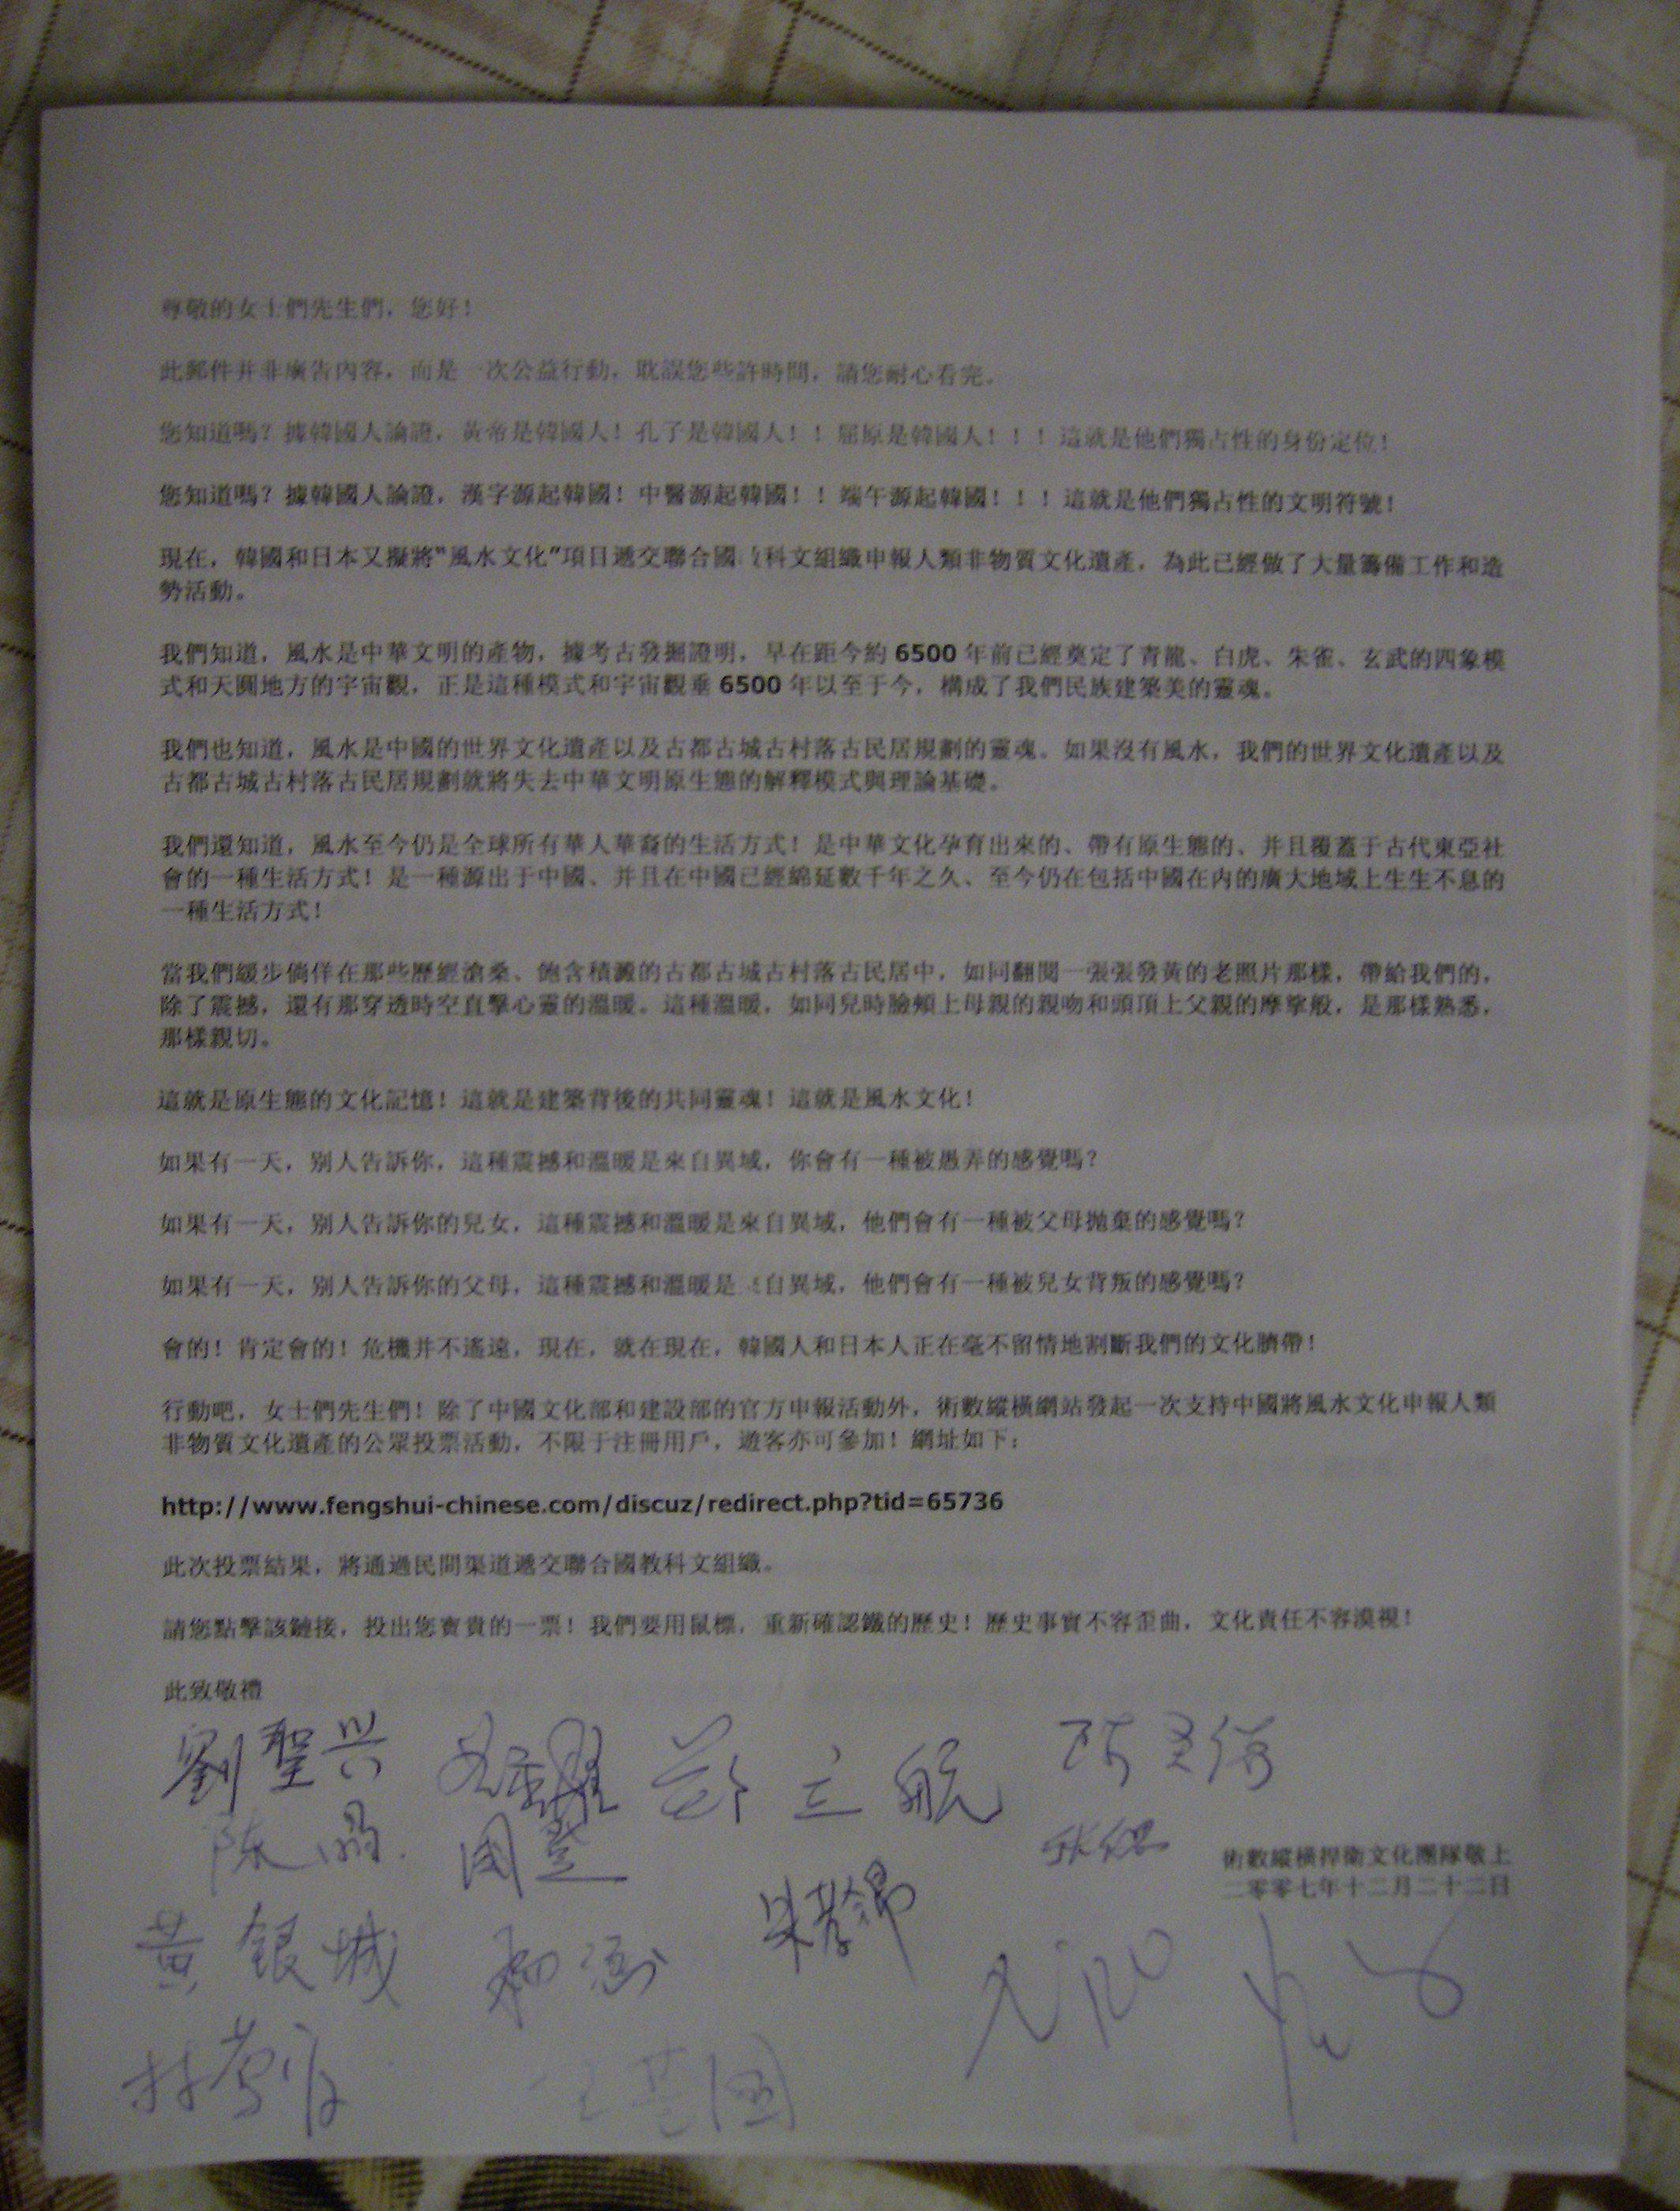 尊敬的女士們先生們，您好！
此郵件并非廣告內容，而是一次公益行動，耽誤您些許時間，請您耐心看完。
您知道嗎？據韓國人論證，黃帝是韓國人！孔子是韓國人！！屈原是韓國人！！！這就是他們獨占性的身份定位！
您知道嗎？據韓國人論證，漢字源起韓國！中醫源起韓國！！端午源起韓國！！！這就是他們獨占性的文明符號！
現在，韓國和日本又擬將“風水文化”項目遞交聯合國教科文組織申報人類非物質文化遺產，為此已經做了大量籌備工作和造
勢活動。
我們知道，風水是中華文明的產物，據考古發掘證明，早在距今約 6500 年前已經奠定了青龍、白虎、朱雀、玄武的四象模
式和天圓地方的宇宙觀，正是這種模式和宇宙觀垂 6500 年以至于今，構成了我們民族建築美的靈魂。
我們也知道，風水是中國的世界文化遺產以及古都古城古村落古民居規劃的靈魂。如果沒有風水，我們的世界文化遺產以及
古都古城古村落古民居規劃就將失去中華文明原生態的解釋模式與理論基礎。
我們還知道，風水至今仍是全球所有華人華裔的生活方式！是中華文化孕育出來的、帶有原生態的、并且覆蓋于古代東亞社
會的一種生活方式！是一種源出于中國、并且在中國已經綿延數千年之久、至今仍在包括中國在內的廣大地域上生生不息的
一種生活方式！
當我們緩步徜徉在那些歷經滄桑、飽含積澱的古都古城古村落古民居中，如同翻閱一張張發黃的老照片那樣，帶給我們的，
除了震撼，還有那穿透時空直擊心靈的溫暖。這種溫暖，如同兒時臉頰上母親的親吻和頭頂上父親的摩挲般，是那樣熟悉，
那樣親切。
這就是原生態的文化記憶！這就是建築背後的共同靈魂！這就是風水文化！
如果有一天，别人告訴你，這種震撼和溫暖是來自異域，你會有一種被愚弄的感覺嗎？
如果有一天，别人告訴你的兒女，這種震撼和溫暖是來自異域，他們會有一種被父母拋棄的感覺嗎？
如果有一天，别人告訴你的父母，這種震撼和溫暖是來自異域，他們會有一種被兒女背叛的感覺嗎？
會的！肯定會的！危機并不遙遠，現在，就在現在，韓國人和日本人正在毫不留情地割斷我們的文化臍帶！
行動吧，女士們先生們！除了中國文化部和建設部的官方申報活動外，術數縱橫網站發起一次支持中國將風水文化申報人類
非物質文化遺產的公眾投票活動，不限于注冊用戶，遊客亦可參加！網址如下：
http://www.fengshui-chinese.com/discuz/redirect.php?tid=65736
此次投票結果，將通過民間渠道遞交聯合國教科文組織。
請您點擊該鏈接，投出您寶貴的一票！我們要用鼠標，重新確認鐵的歷史！歷史事實不容歪曲，文化責任不容漠視！
此致敬禮
劉聖兴
立航
術數縱橫捍衛文化團隊敬上
二零零七年十二月二十二日
黃銀城